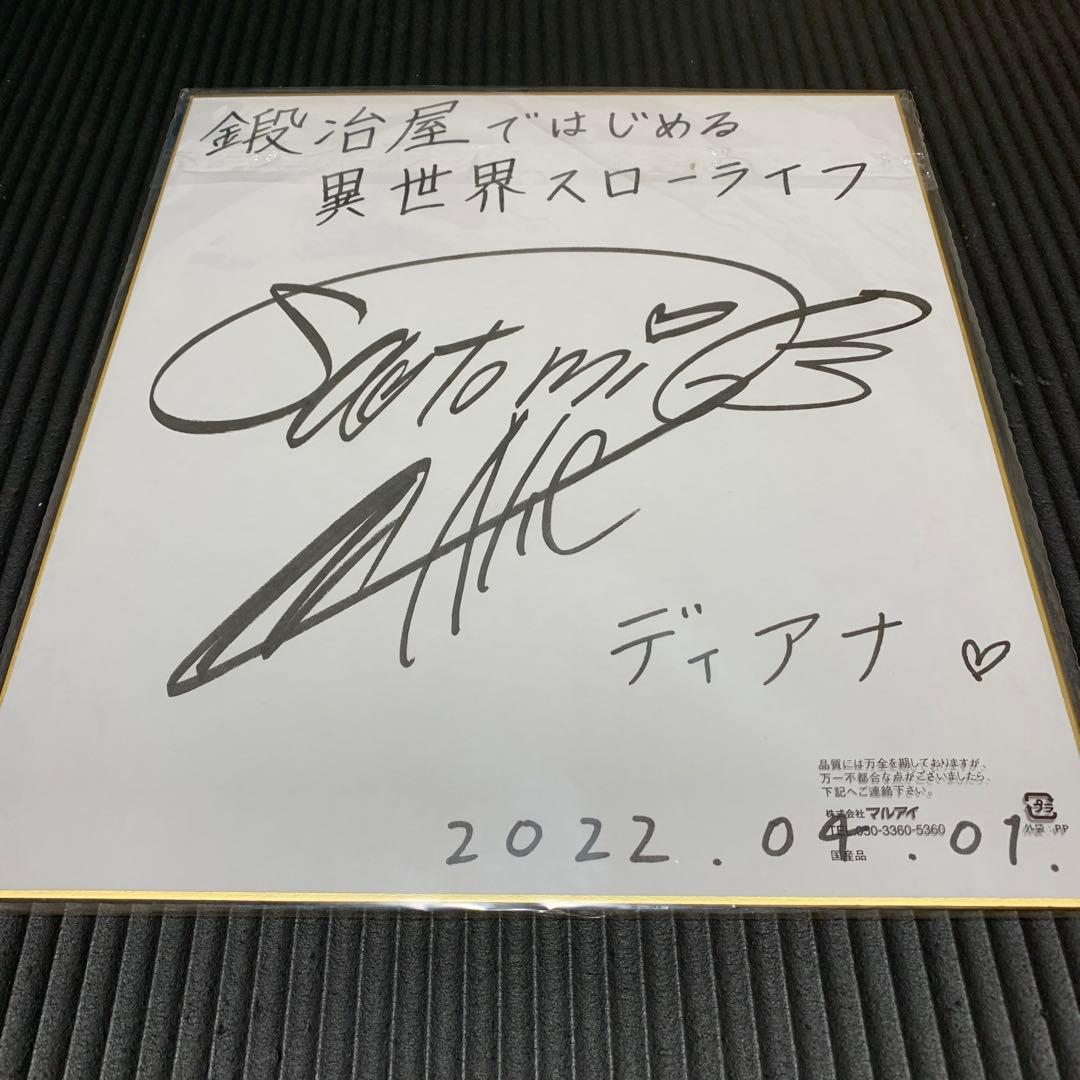 鍛冶屋ではじめる
異世界スローライフ
Satomi
Akie
ディアナ♡
品質には万全を期しておりますが、
万一不都合な点がございましたら、
下記へご連絡下さい。
株式会社 マルアイ
TEL.030-3360-5360
国産品
プラ
外袋：PP
2022.04.01.